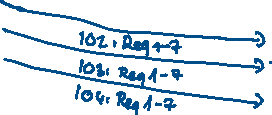 102: Req 1-7
103: Req 1-7
104: Req 1-7